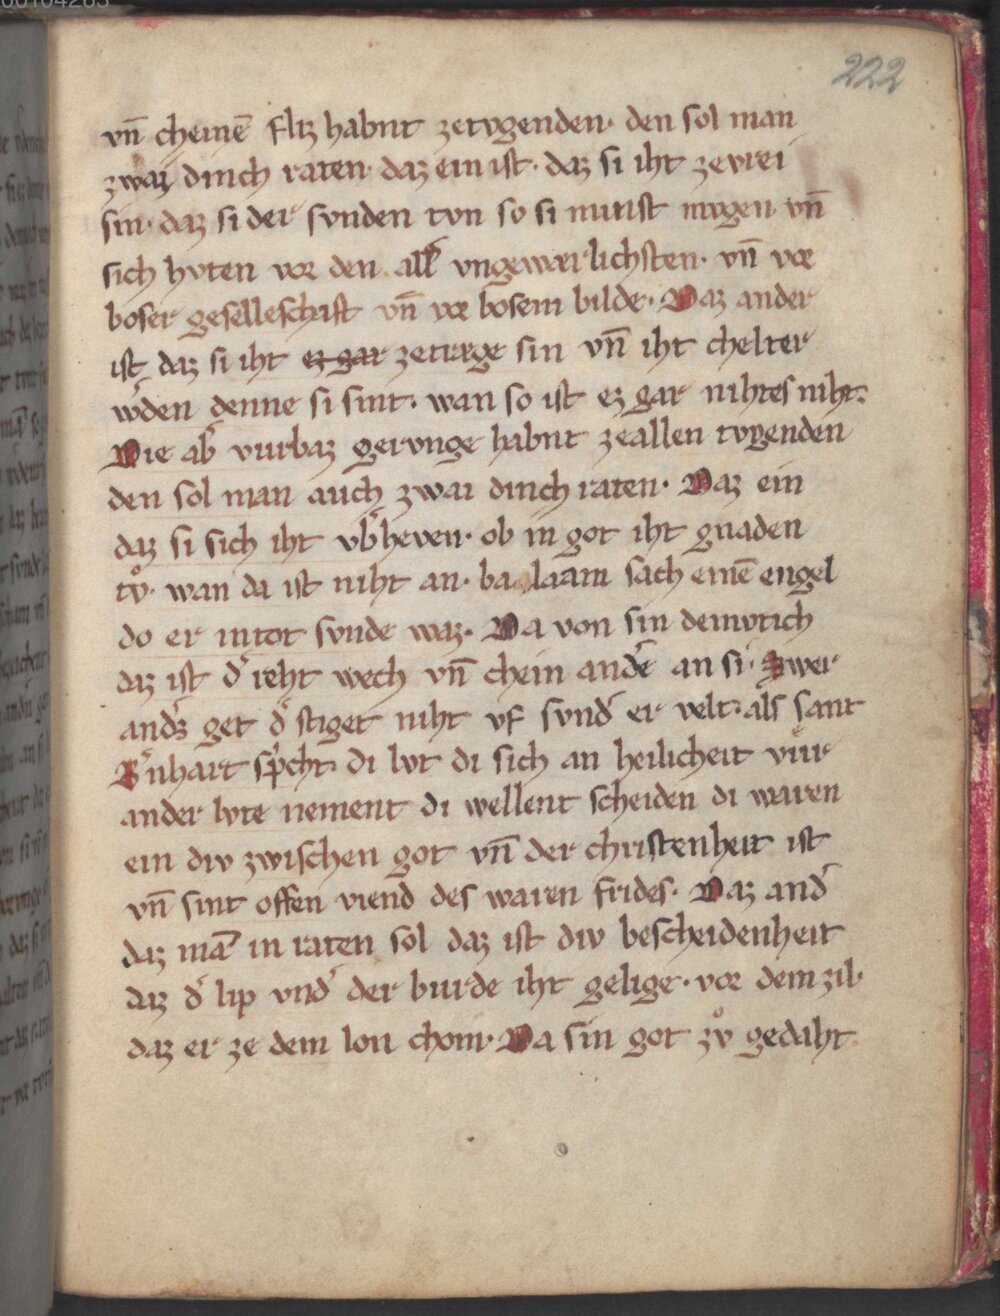 222
vn̄ cheinē fliz habnt zetvgenden· den sol man
zwai dinch raten· daz ein ist· daz si iht zevrei
sin· daz si der svnden tvn so si minist mvgen· vn̄
sich hvten vor den all͛ vngewærlichsten· vn̄ vor
boser geselleschaft vn̄ vor bosem bilde· Daz ander
ist daz si iht ez gar zetræge sin vn̄ iht chelter
w͛den denne si sint· wan so ist ez gar nihtes niht·
Die ab͛ vurbaz gervnge habnt zeallen tvgenden
den sol man auch zwai dinch raten· Daz ein
daz si sich iht vb͛heven· ob in got iht gnaden
tvͦ· wan da ist niht an· balaam sach einē engel
do er in tot svnde waz· Da von sin demvtich
daz ist d͛ reht wech vn̄ chein and͛e an si· Swer
and͛s get d͛ stiget niht vf svnd͛ er velt· als sant
B͛nhart sp͛cht· di lvt di sich an heilicheit vûr
ander lvte nement di wellent scheiden di waren
ein div zwischen got vn̄ der christenheit ist
vn̄ sint offen viend des waren frides· Daz and͛
daz mā in raten sol daz ist div bescheidenheit
daz d͛ lip vnd͛ der burde iht gelige· vor dem zil·
daz er ze dem lon chom· Da sin got zvͦ gedaht